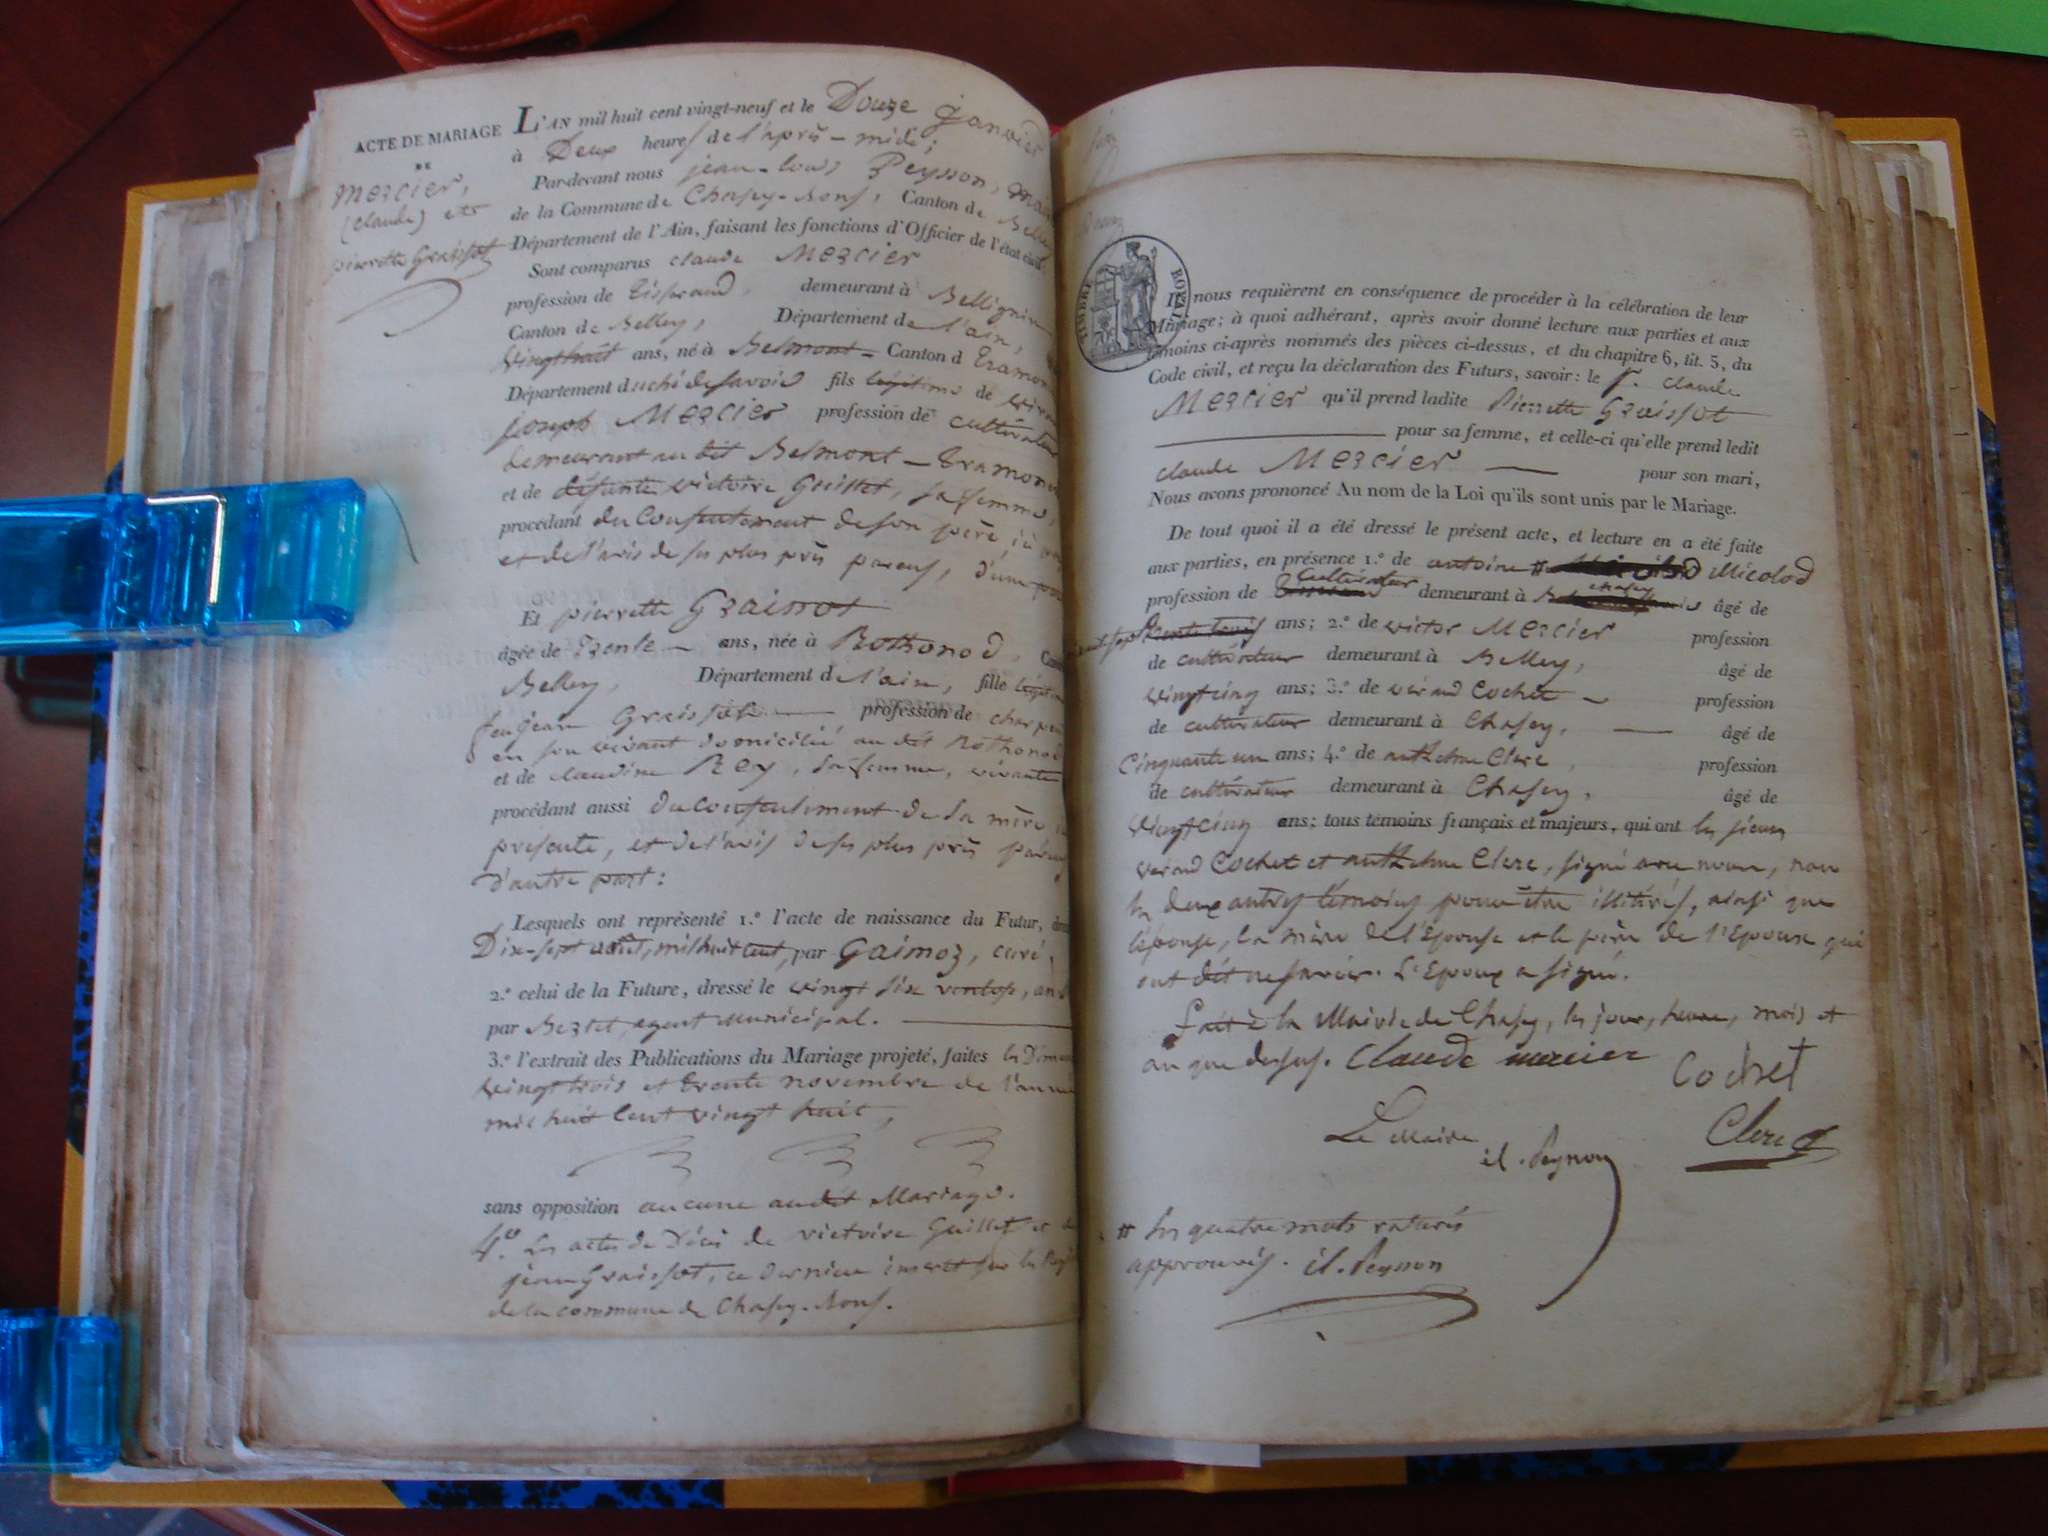 ACTE DE MARIAGE
DE
Mercier,
(claude) et
pierrette Graissot
L'AN mil huit cent vingt-neuf et le Douze janvier
à Deux heures de l'après-midi;
Par-devant nous jean-louis Peysson,
de la Commune de Chasey-Bons, Canton de
Département de l'Ain, faisant les fonctions d'Officier de l'état civil.
Sont comparus claude Mercier
profession de Tisserand, demeurant à
Canton de Belley, Département de l'ain,
vingthuit ans, né à Belmont - Canton d
Département duché de savoie fils légitime de
joseph Mercier profession de cultivateur
demeurant au dit Belmont - Tramonex
et de défunte victoire Guillet, sa femme,
procédant du Consentement de son père, ici
et de l'avis de ses plus près parens, d'une
Et pierrette Graissot
âgée de Trente - ans, née à Rothonod,
Belley, Département de l'ain, fille
feu jean Graissot - profession de
en son vivant domicilié au dit Rothonod
et de claudine Rey, sa femme, vivante
procédant aussi du consentement de sa mère
présente, et de l'avis de ses plus près parens
d'autre part:
Lesquels ont représenté 1.º l'acte de naissance du Futur,
Dix-sept août, mil huit cent, par Gaimoz, curé,
2.º celui de la Future, dressé le vingt six ventose,
par agent municipal.
3.º l'extrait des Publications du Mariage projeté, faites les
vingt trois et trente novembre de l'année
mil huit cent vingt huit,
sans opposition aucune audit Mariage.
4.º Les actes de Décès de victoire Guillet et
jean Graissot, ce dernier inscrit sur les
de la commune de Chasey-Bons.
TIMBRE ROYAL
Ils nous requièrent en conséquence de procéder à la célébration de leur
Mariage; à quoi adhérant, après avoir donné lecture aux parties et aux
témoins ci-après nommés des pièces ci-dessus, et du chapitre 6, tit. 5, du
Code civil, et reçu la déclaration des Futurs, savoir: le S. claude
Mercier qu'il prend ladite Pierrette Graissot
pour sa femme, et celle-ci qu'elle prend ledit
claude Mercier pour son mari,
Nous avons prononcé Au nom de la Loi qu'ils sont unis par le Mariage.
De tout quoi il a été dressé le présent acte, et lecture en a été faite
aux parties, en présence 1.º de antoine # Micolod
profession de cultivateur demeurant à chasey âgé de
ans; 2.º de victor Mercier profession
de cultivateur demeurant à Belley, âgé de
vingtcinq ans; 3.º de vérand Cochet - profession
de cultivateur demeurant à Chasey, âgé de
Cinquante un ans; 4.º de anthelme Clerc, profession
de cultivateur demeurant à Chasey, âgé de
vingtcinq ans; tous témoins français et majeurs, qui ont les sieurs
vérand Cochet et anthelme Clerc, signé avec nous, non
les deux autres témoins pour être illitérés, ainsi que
l'épouse, la mère de l'Epouse et le père de l'Epoux qui
ont dit ne savoir. L'Epoux a signé.
fait à la Mairie de Chasey, les jour, heure, mois et
an que dessus. Claude mercier
Cochet
Le Maire Clerc
# les quatre mots raturés
approuvés.